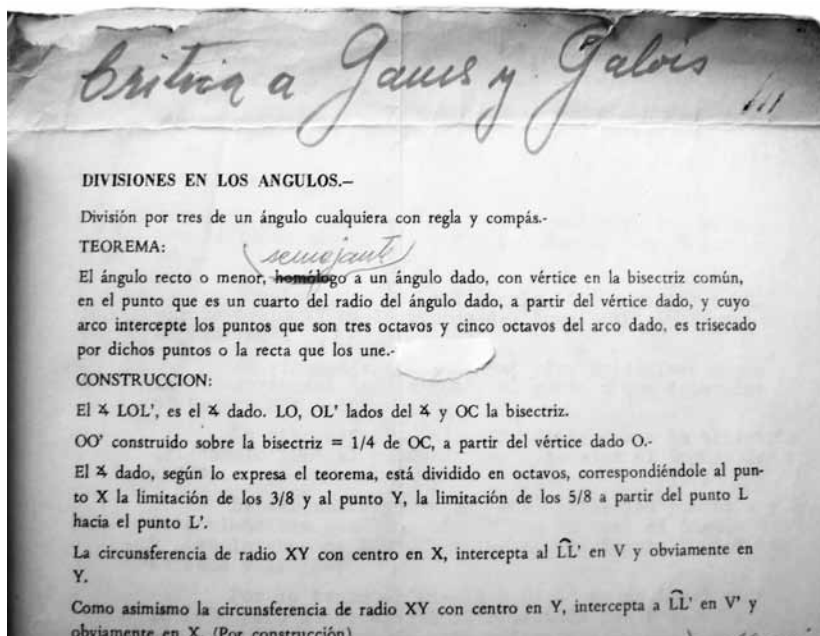 Critica a Gauss y Galois
DIVISIONES EN LOS ANGULOS.—
División por tres de un ángulo cualquiera con regla y compás.-
TEOREMA:
semejante
El ángulo recto o menor, homólogo a un ángulo dado, con vértice en la bisectriz común,
en el punto que es un cuarto del radio del ángulo dado, a partir del vértice dado, y cuyo
arco intercepte los puntos que son tres octavos y cinco octavos del arco dado, es trisecado
por dichos puntos o la recta que los une.-
CONSTRUCCION:
El ∡ LOL', es el ∡ dado. LO, OL' lados del ∡ y OC la bisectriz.
OO' construido sobre la bisectriz = 1/4 de OC, a partir del vértice dado O.-
El ∡ dado, según lo expresa el teorema, está dividido en octavos, correspondiéndole al pun-
to X la limitación de los 3/8 y al punto Y, la limitación de los 5/8 a partir del punto L
hacia el punto L'.
La circunsferencia de radio XY con centro en X, intercepta al LL' en V y obviamente en
Y.
Como asimismo la circunsferencia de radio XY con centro en Y, intercepta a LL' en V' y
obviamente en X. (Por construcción)